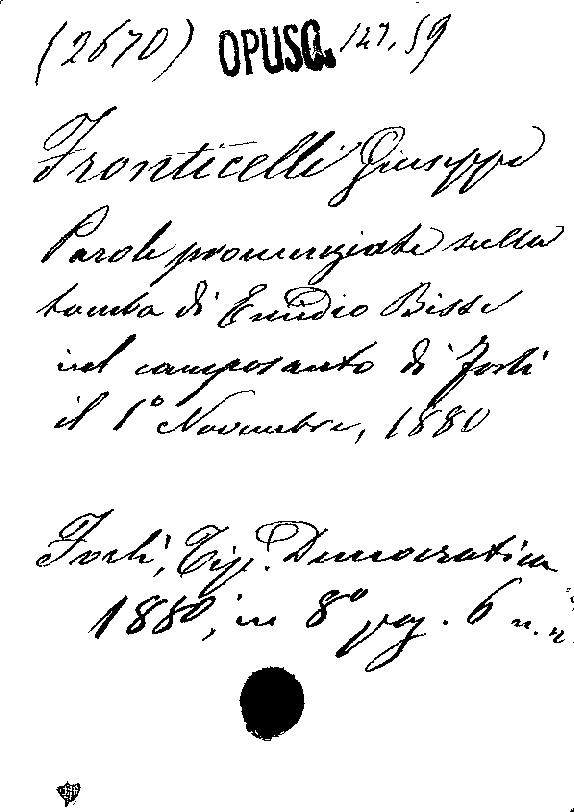 (2670) OPUSC. 127.59
Fronticelli Giuseppe
Parole pronunziate sulla
tomba di Emidio Bisse
nel camposanto di Forlì
il 1º Novembre, 1880
Forlì, Tip. Democratica
1880, in 8º pag. 6 n. n.